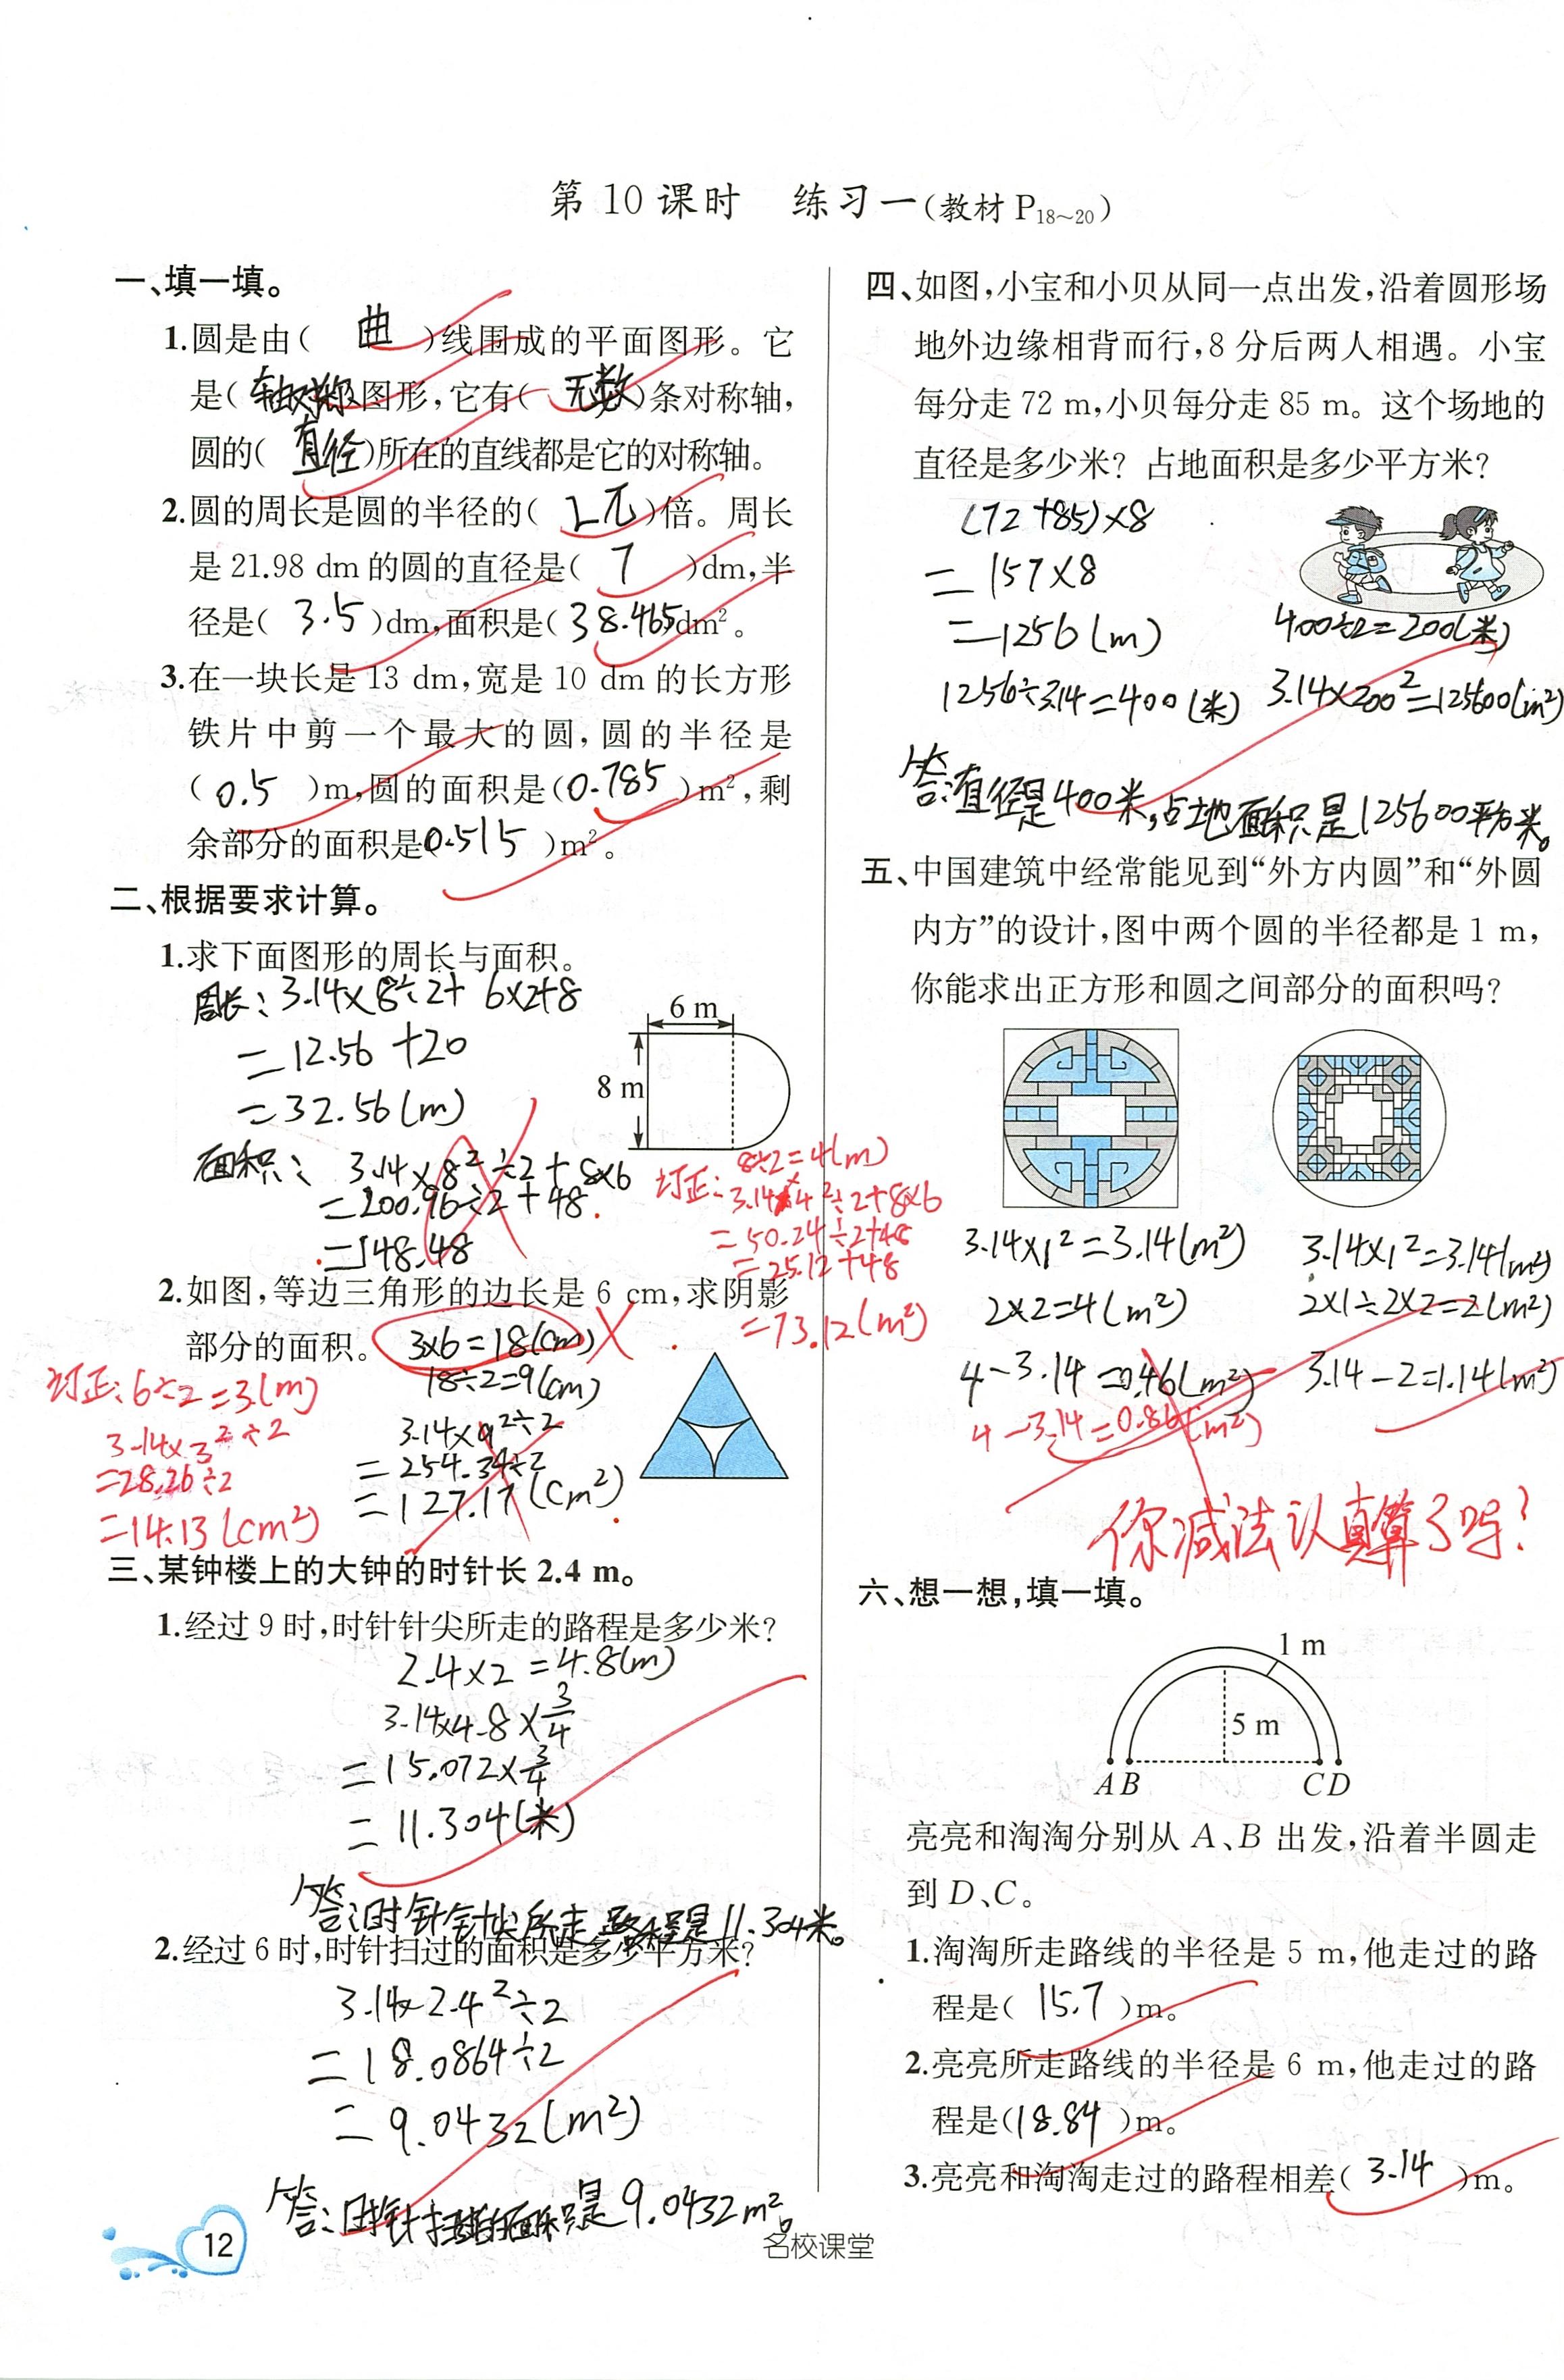 第 10 课时 练习一(教材 P18~20)
一、填一填。
1.圆是由( 曲 )线围成的平面图形。它
是( 轴对称 )图形,它有( 无数 )条对称轴,
圆的( 直径 )所在的直线都是它的对称轴。
2.圆的周长是圆的半径的( 2π )倍。周长
是 21.98 dm 的圆的直径是( 7 )dm,半
径是( 3.5 )dm,面积是( 38.465 )dm²。
3.在一块长是 13 dm,宽是 10 dm 的长方形
铁片中剪一个最大的圆,圆的半径是
( 0.5 )m,圆的面积是( 0.785 )m²,剩
余部分的面积是( 0.515 )m²。
二、根据要求计算。
1.求下面图形的周长与面积。
周长:3.14×8÷2+6×2+8
=12.56+20
=32.56(m)
6 m
8 m
面积: 3.14×8²÷2+8×6
=200.96÷2+48
=148.48
订正: 8÷2=4(m)
3.14×4²÷2+8×6
=50.24÷2+48
=25.12+48
=73.12(m²)
2.如图,等边三角形的边长是 6 cm,求阴影
部分的面积。 3×6=18(cm)
18÷2=9(cm)
3.14×9²÷2
=254.34÷2
=127.17(cm²)
订正:6÷2=3(m)
3.14×3²÷2
=28.26÷2
=14.13(cm²)
三、某钟楼上的大钟的时针长 2.4 m。
1.经过 9 时,时针针尖所走的路程是多少米?
2.4×2=4.8(m)
3.14×4.8×3/4
=15.072×3/4
=11.304(米)
答:时针针尖所走路程是11.304米。
2.经过 6 时,时针扫过的面积是多少平方米?
3.14×2.4²÷2
=18.0864÷2
=9.0432(m²)
答:时针扫过的面积是9.0432m²。
四、如图,小宝和小贝从同一点出发,沿着圆形场
地外边缘相背而行,8 分后两人相遇。小宝
每分走 72 m,小贝每分走 85 m。这个场地的
直径是多少米? 占地面积是多少平方米?
(72+85)×8
=157×8
=1256(m)
1256÷3.14=400(米)
400÷2=200(米)
3.14×200²=125600(m²)
答:直径是400米,占地面积是125600平方米。
五、中国建筑中经常能见到“外方内圆”和“外圆
内方”的设计,图中两个圆的半径都是 1 m,
你能求出正方形和圆之间部分的面积吗?
3.14×1²=3.14(m²)
2×2=4(m²)
4-3.14=0.46(m²)
4-3.14=0.86(m²)
3.14×1²=3.14(m²)
2×1÷2×2=2(m²)
3.14-2=1.14(m²)
你减法认真算了吗?
六、想一想,填一填。
1 m
5 m
A B C D
亮亮和淘淘分别从 A、B 出发,沿着半圆走
到 D、C。
1.淘淘所走路线的半径是 5 m,他走过的路
程是( 15.7 )m。
2.亮亮所走路线的半径是 6 m,他走过的路
程是( 18.84 )m。
3.亮亮和淘淘走过的路程相差( 3.14 )m。
12
名校课堂